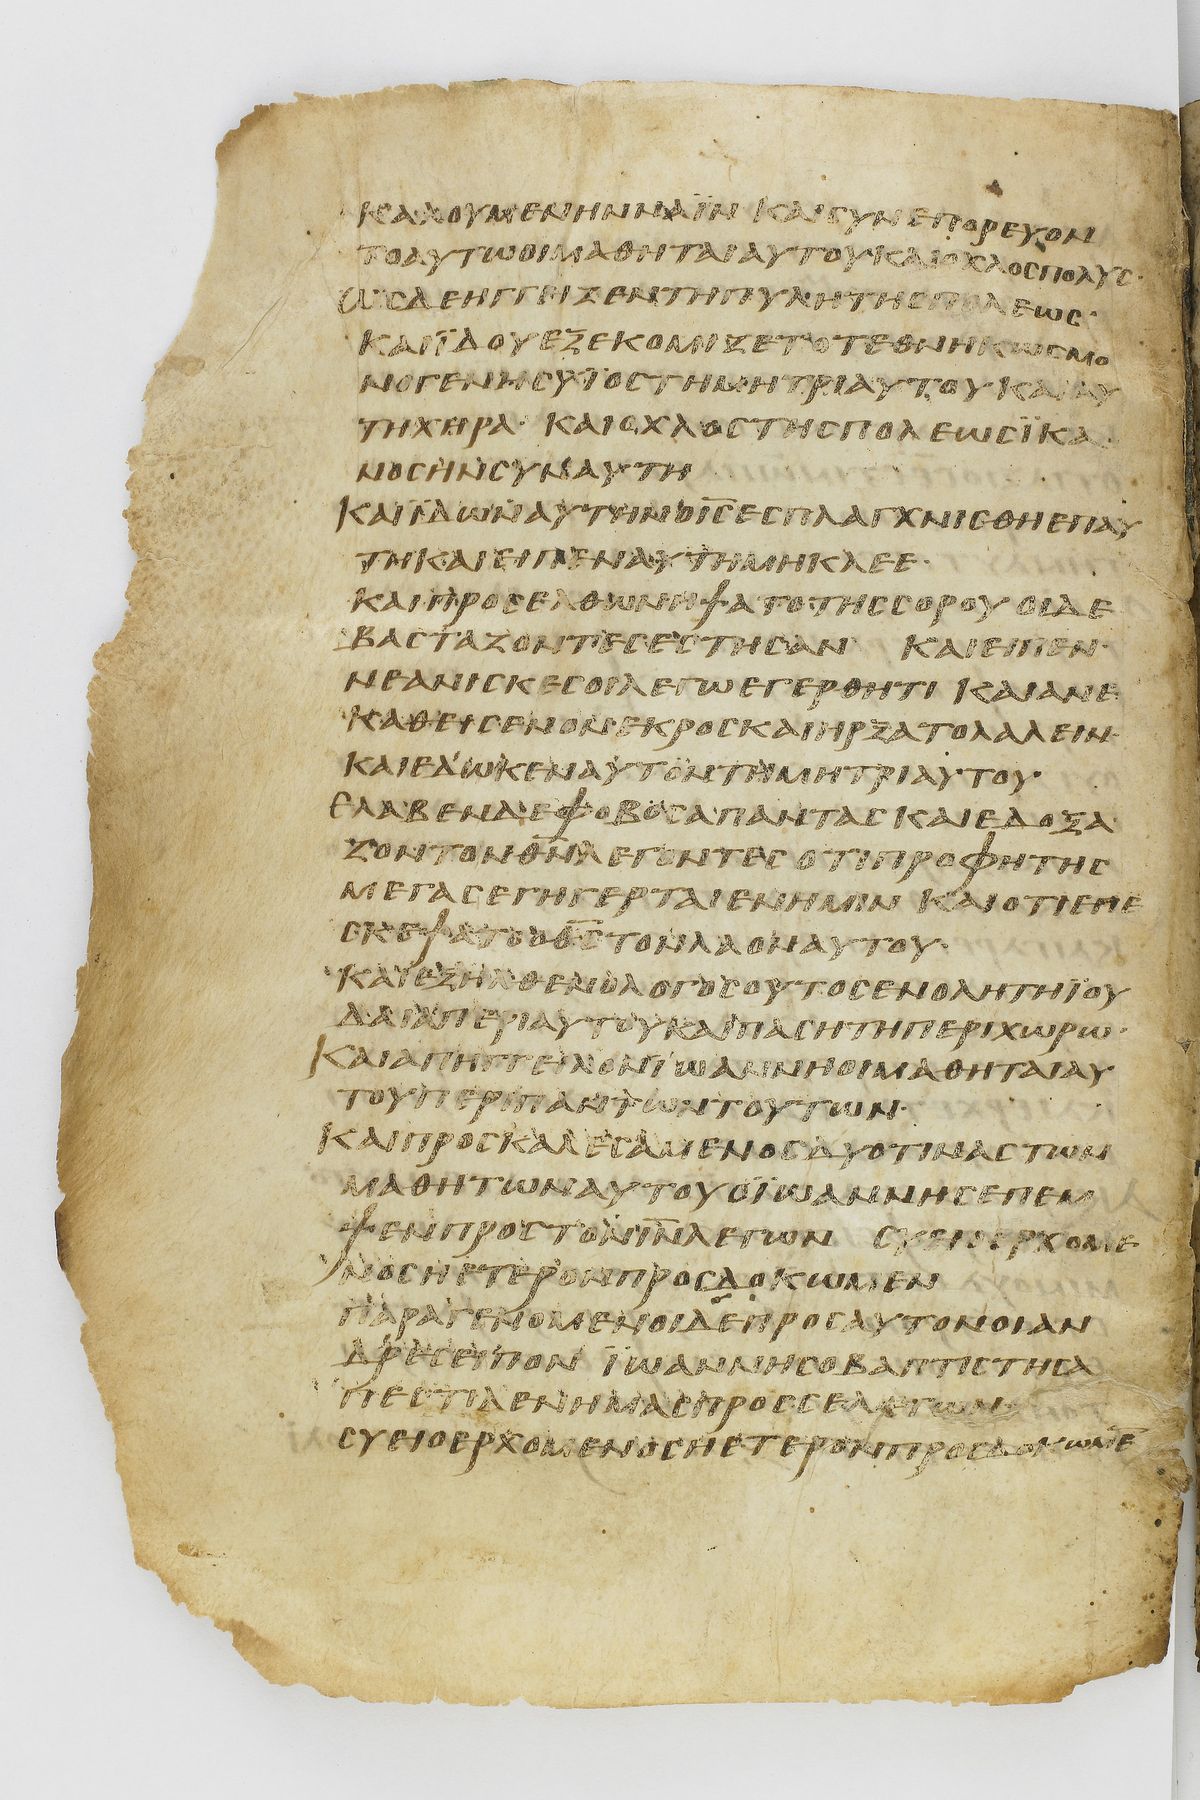 ΚΑΛΟΥΜΕΝΗΝΝΑΪΝ ΚΑΙΣΥΝΕΠΟΡΕΥΟΝ
ΤΟΑΥΤΩΟΙΜΑΘΗΤΑΙΑΥΤΟΥ·ΚΑΙΟΧΛΟΣΠΟΛΥΣ·
ΩΣΔΕΗΓΓΕΙΖΕΝΤΗΠΥΛΗΤΗΣΠΟΛΕΩΣ·
ΚΑΙΪΔΟΥΕΞΕΚΟΜΙΖΕΤΟΤΕΘΝΗΚΩΣΜΟ
ΝΟΓΕΝΗΣΥΪΟΣΤΗΜΗΤΡΙΑΥΤΟΥ ΚΑΙΑΥ
ΤΗΧΗΡΑ· ΚΑΙΟΧΛΟΣΤΗΣΠΟΛΕΩΣΪΚΑ
ΝΟΣΗΝΣΥΝΑΥΤΗ
ΚΑΙΪΔΩΝΑΥΤΗΝΟΙ̅Σ̅ΕΣΠΛΑΓΧΝΙΣΘΗΕΠΑΥ
ΤΗΚΑΙΕΙΠΕΝΑΥΤΗΜΗΚΛΕΕ·
ΚΑΙΠΡΟΣΕΛΘΩΝΗΨΑΤΟΤΗΣΣΟΡΟΥ ΟΙΔΕ
ΒΑΣΤΑΖΟΝΤΕΣΕΣΤΗΣΑΝ ΚΑΙΕΙΠΕΝ·
ΝΕΑΝΙΣΚΕΣΟΙΛΕΓΩΕΓΕΡΘΗΤΙ ΚΑΙΑΝΕ
ΚΑΘΕΙΣΕΝΟΝΕΚΡΟΣΚΑΙΗΡΞΑΤΟΛΑΛΕΙΝ·
ΚΑΙΕΔΩΚΕΝΑΥΤΟΝΤΗΜΗΤΡΙΑΥΤΟΥ
ΕΛΑΒΕΝΔΕΦΟΒΟΣΑΠΑΝΤΑΣΚΑΙΕΔΟΞΑ
ΖΟΝΤΟΝΘ̅Ν̅ΛΕΓΟΝΤΕΣ ΟΤΙΠΡΟΦΗΤΗΣ
ΜΕΓΑΣΕΓΗΓΕΡΤΑΙΕΝΗΜΙΝ ΚΑΙΟΤΙΕΠΕ
ΣΚΕΨΑΤΟΟΘ̅Σ̅ΤΟΝΛΑΟΝΑΥΤΟΥ·
ΚΑΙΕΞΗΛΘΕΝΟΛΟΓΟΣΟΥΤΟΣΕΝΟΛΗΤΗΪΟΥ
ΔΑΙΑΠΕΡΙΑΥΤΟΥΚΑΙΠΑΣΗΤΗΠΕΡΙΧΩΡΩ·
ΚΑΙΑΠΗΓΓΕΙΛΟΝΪΩΑΝΝΗΟΙΜΑΘΗΤΑΙΑΥ
ΤΟΥΠΕΡΙΠΑΝΤΩΝΤΟΥΤΩΝ·
ΚΑΙΠΡΟΣΚΑΛΕΣΑΜΕΝΟΣΔΥΟΤΙΝΑΣΤΩΝ
ΜΑΘΗΤΩΝΑΥΤΟΥΟΪΩΑΝΝΗΣΕΠΕΜ
ΨΕΝΠΡΟΣΤΟΝΙ̅Ν̅ΛΕΓΩΝ ΣΥΕΙΟΕΡΧΟΜΕ
ΝΟΣΗΕΤΕΡΟΝΠΡΟΣΔΟΚΩΜΕΝ
ΠΑΡΑΓΕΝΟΜΕΝΟΙΔΕΠΡΟΣΑΥΤΟΝΟΙΑΝ
ΔΡΕΣΕΙΠΟΝ ΪΩΑΝΝΗΣΟΒΑΠΤΙΣΤΗΣΑ
ΠΕΣΤΙΛΕΝΗΜΑΣΠΡΟΣΣΕΛΕΓΩΝ·
ΣΥΕΙΟΕΡΧΟΜΕΝΟΣΗΕΤΕΡΟΝΠΡΟΣΔΟΚΩΜΕ̅